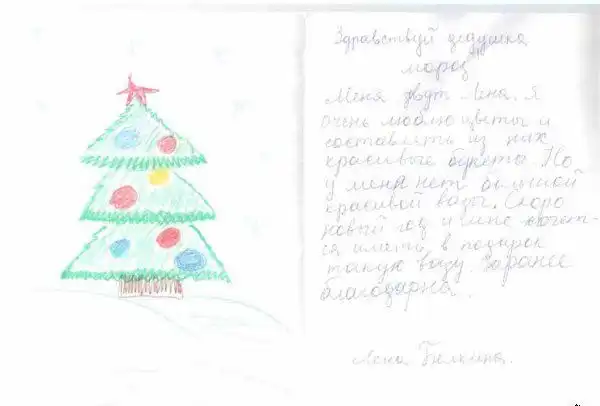 Здравствуй дедушка
мороз
Меня зовут Лена. Я
очень люблю цветы и
составлять из них
красивые букеты. Но
у меня нет большой
красивой вазы. Скоро
новый год и мне хочет-
ся иметь в подарок
такую вазу. Заранее
благодарна.
Лена Белкина.